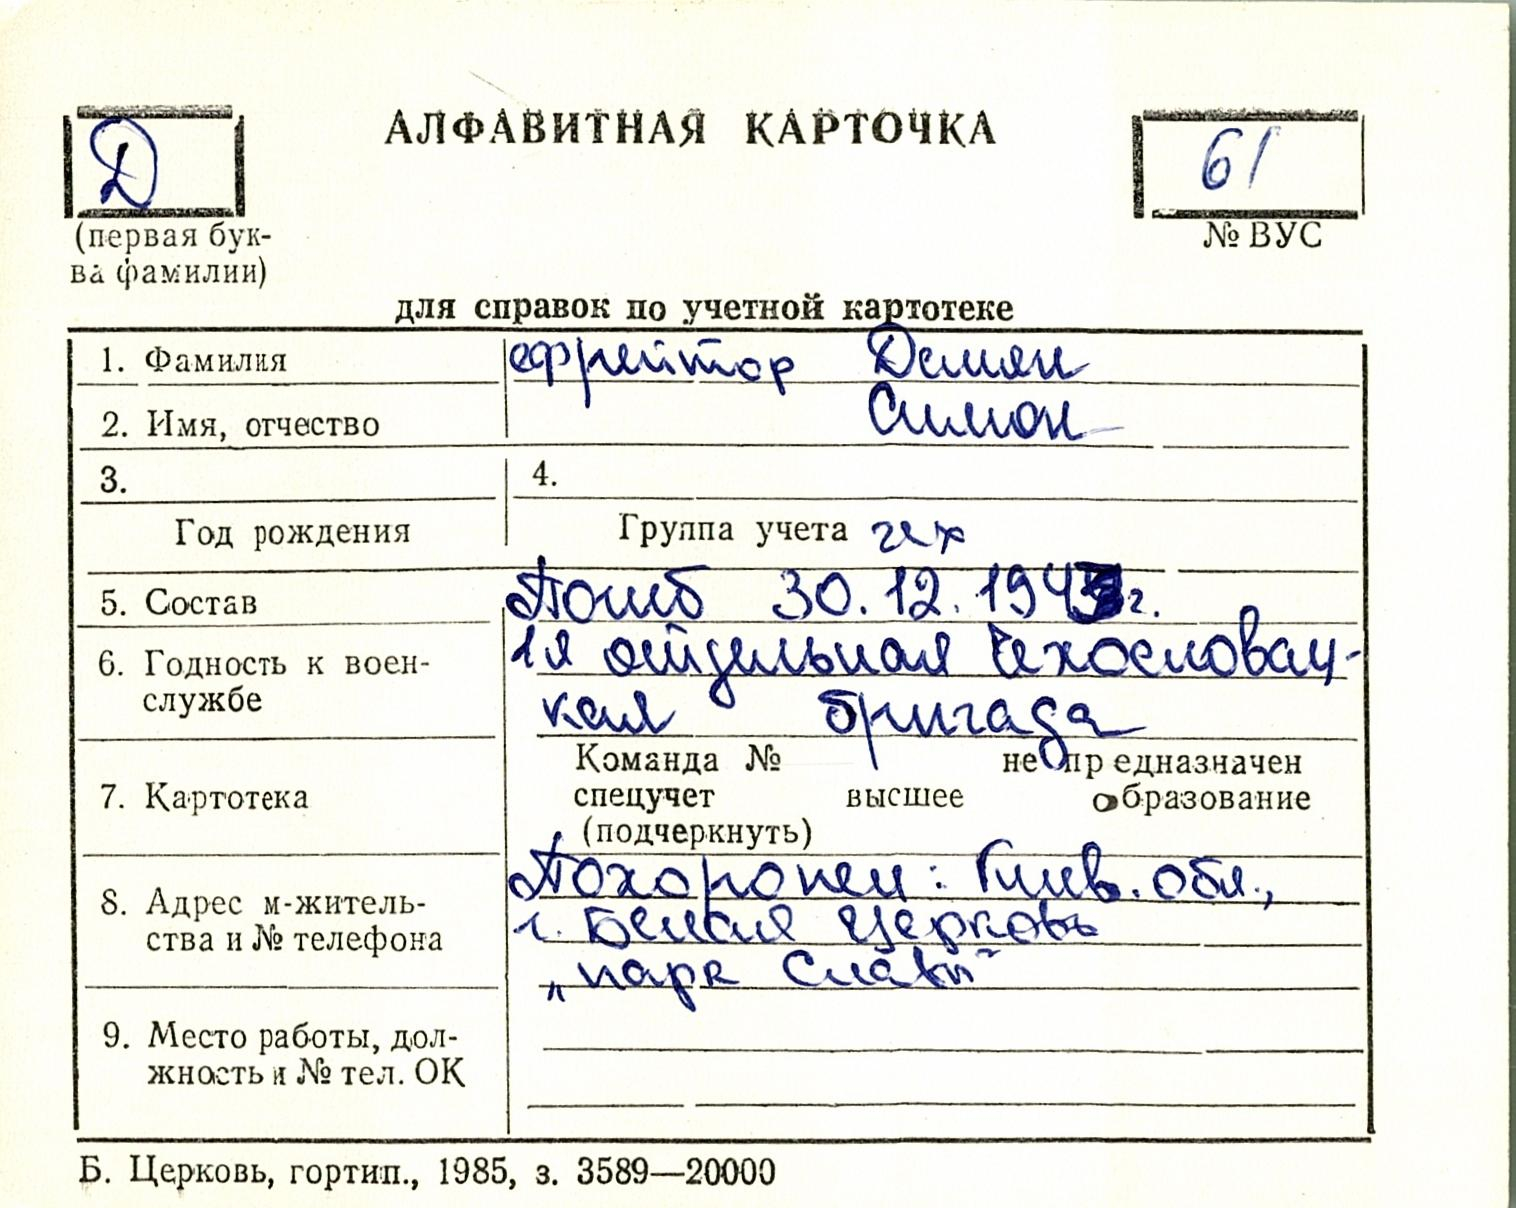 Д
АЛФАВИТНАЯ КАРТОЧКА
61
(первая бук-
ва фамилии)
№ ВУС
для справок по учетной картотеке
1. Фамилия ефрейтор Демян
2. Имя, отчество Симон
3. 4.
Год рождения Группа учета чех
5. Состав Погиб 30.12.1943г.
6. Годность к воен- 1я отдельная Чехословац-
службе кая бригада
Команда № не предназначен
7. Картотека спецучет высшее образование
(подчеркнуть)
Похоронен: Киев. обл.,
8. Адрес м-житель- г. Белая Церковь
ства и № телефона „парк Славы"
9. Место работы, дол-
жность и № тел. ОК
Б. Церковь, гортип., 1985, з. 3589—20000